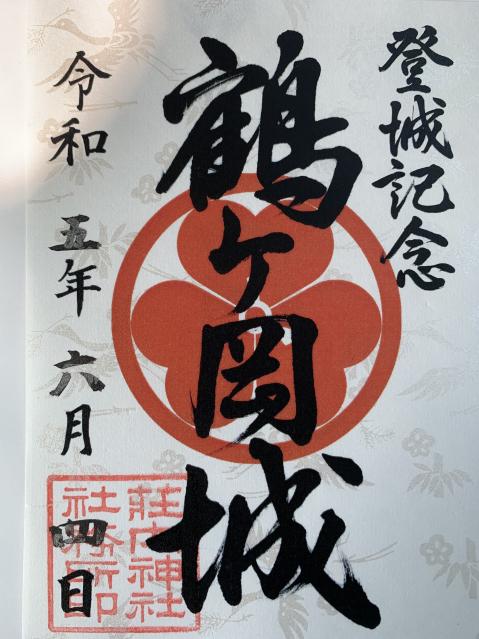 登城記念
鶴ヶ岡城
令和五年六月四日
荘内神社
社務所印